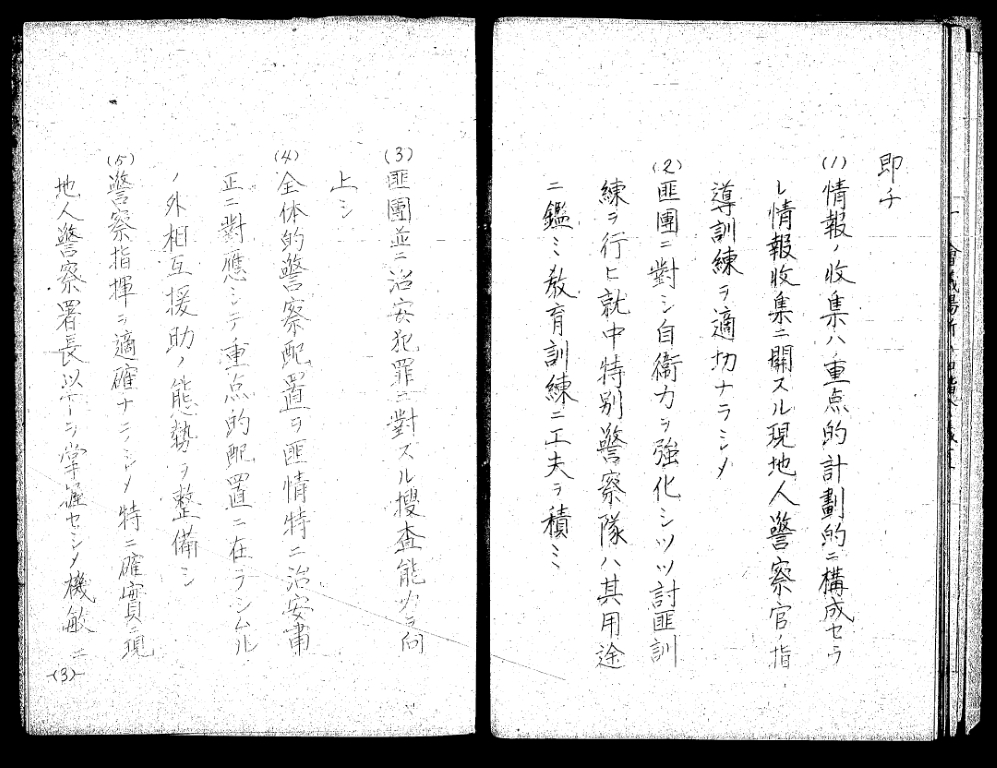 即チ
(1)情報ノ收集ハ重点的計劃的ニ構成セラ
レ情報收集ニ関スル現地人警察官ノ指
導訓練ヲ適切ナラシメ
(2)匪團ニ對シ自衞力ヲ強化シツツ討匪訓
練ヲ行ヒ就中特別警察隊ハ其用途
ニ鑑ミ敎育訓練ニ工夫ヲ積ミ
(3)匪團並ニ治安犯罪ニ對スル搜査能力ヲ向
上シ
(4)全体的警察配置ヲ匪情特ニ治安肅
正ニ對應シテ重点的配置ニ在ラシムル
ノ外相互援助ノ態勢ヲ整備シ
(5)警察指揮ヲ適確ナラシメ特ニ確實ニ現
地人警察署長以下ヲ掌握セシメ機敏ニ
(3)